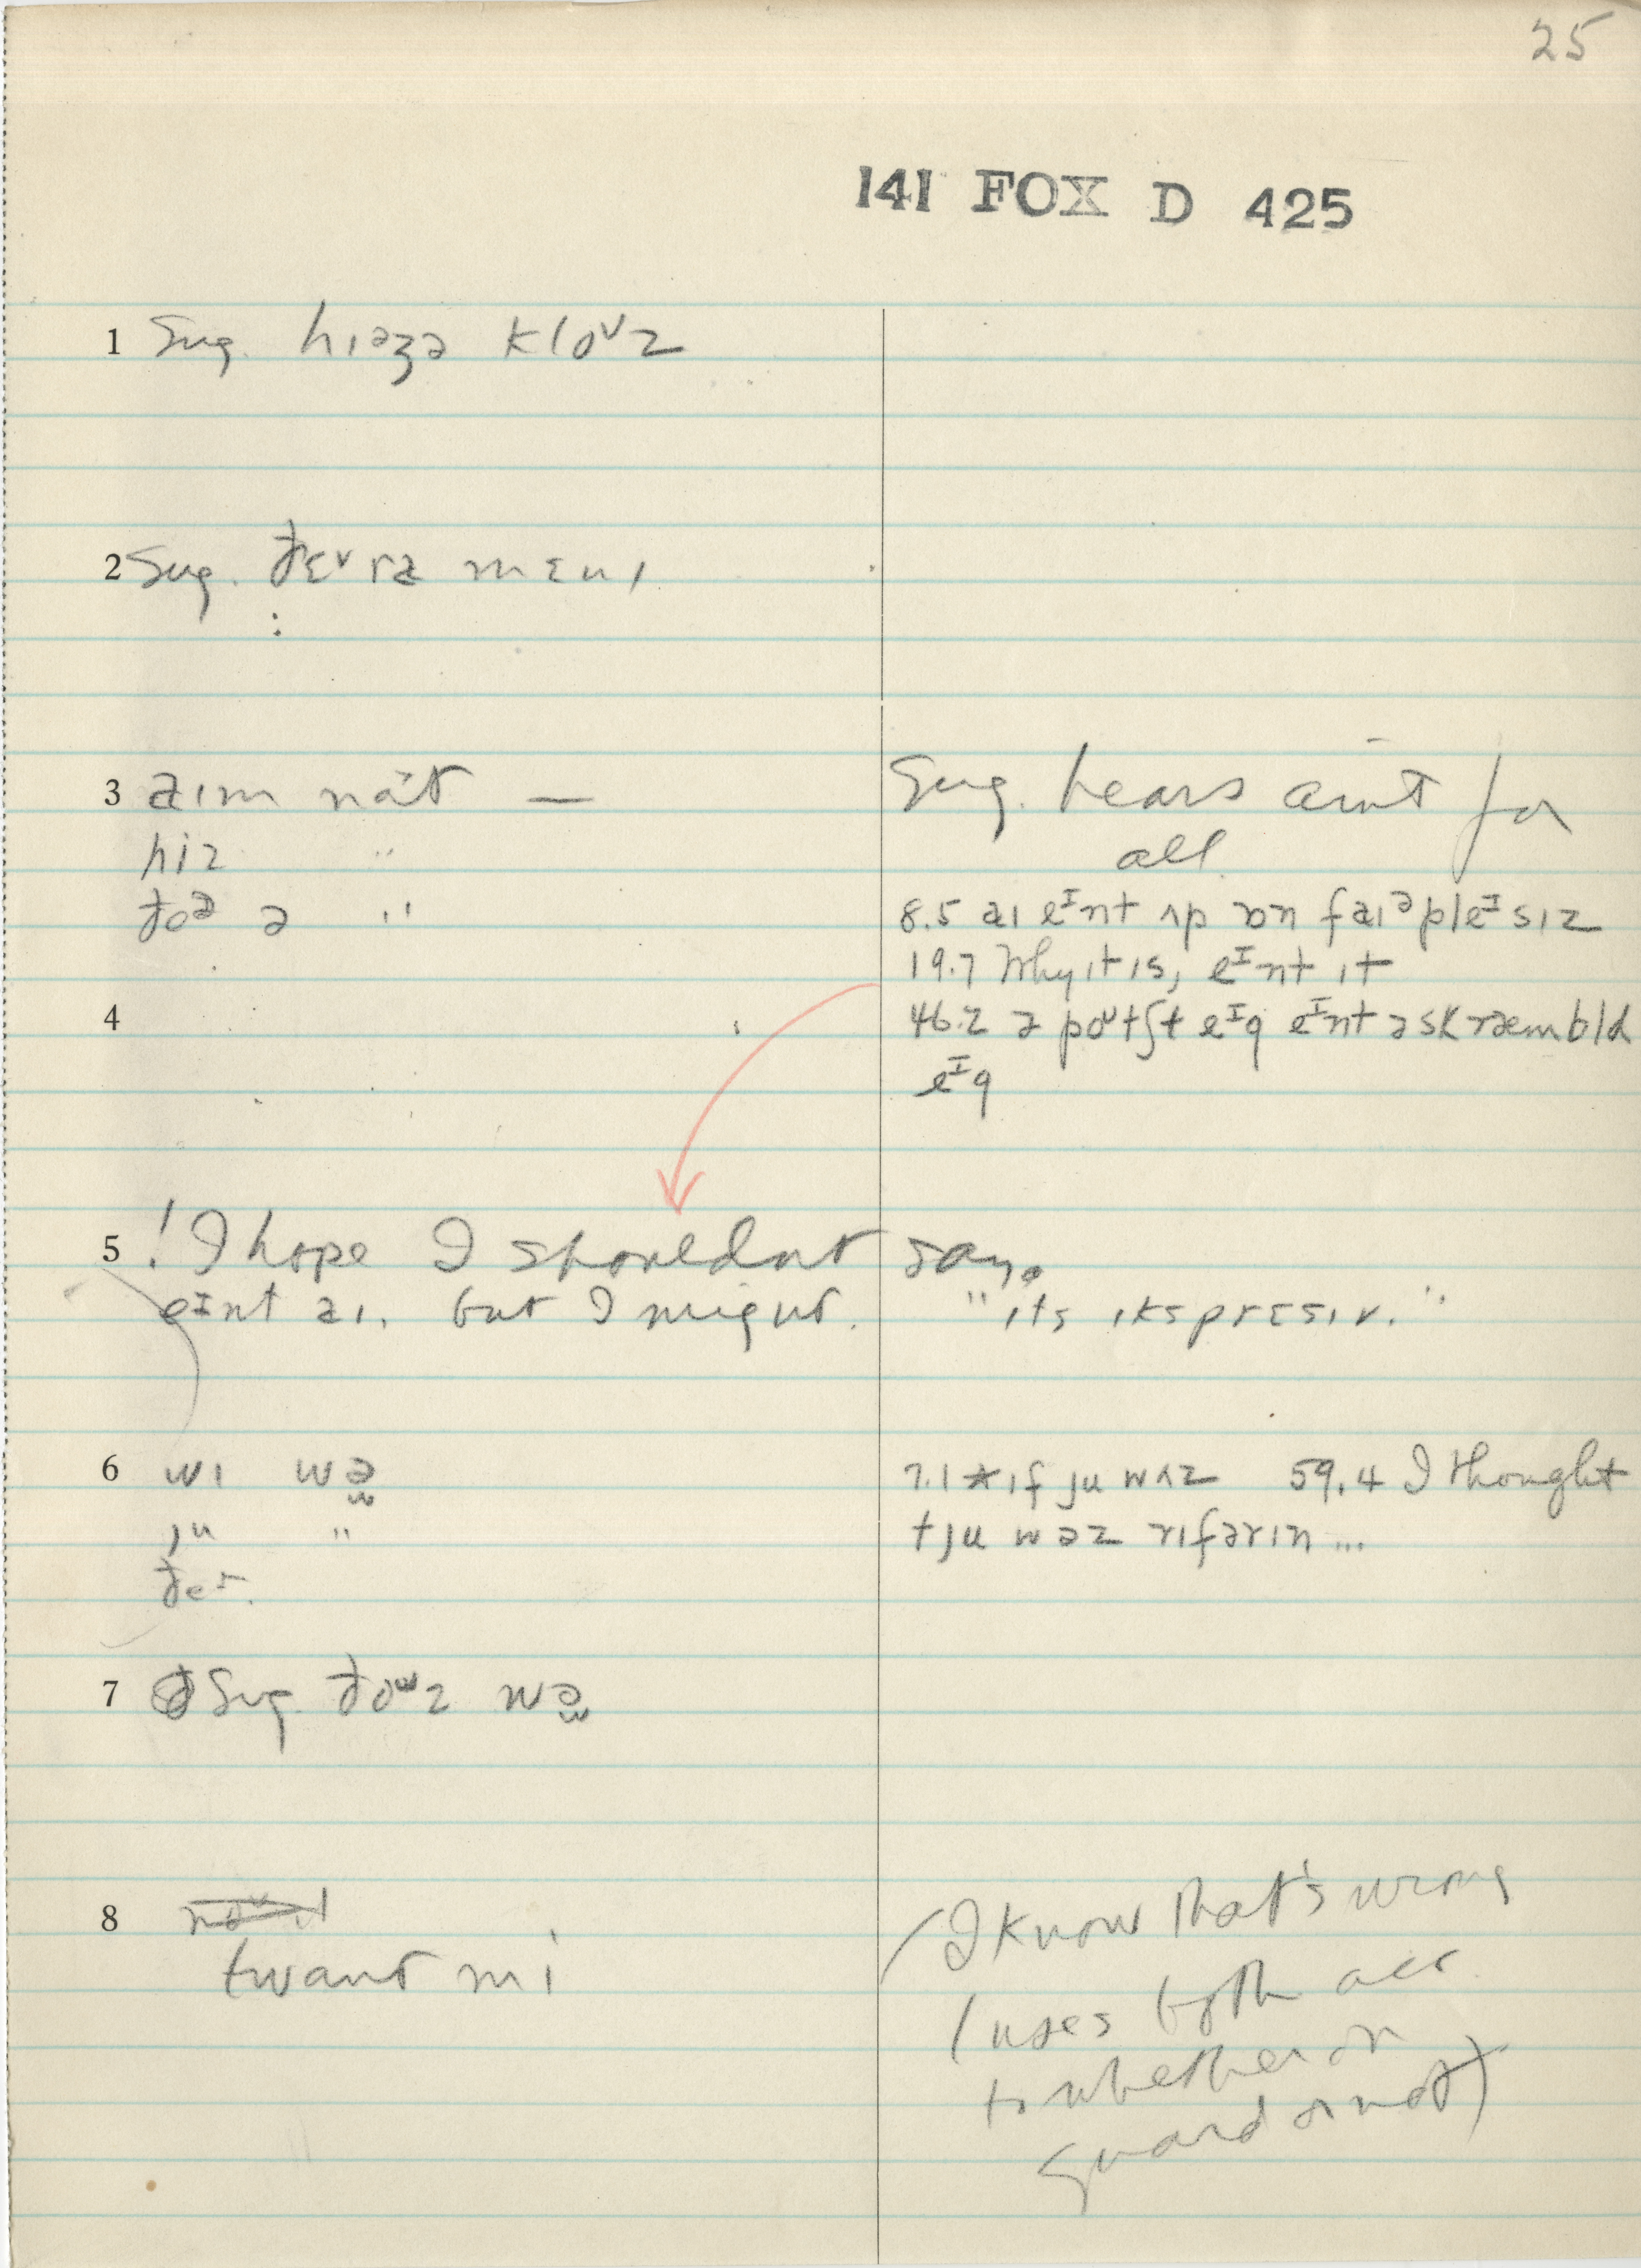 25
141 FOX D 425
1 Sug. hɪəzə kloᵁz
2 Sug. ðɛᵊrə mɛnɪ
3 aɪm nɑt —
hiz "
ðeᵊ ə "
Sug. hears ain't for
all
8.5 aɪ eᴵnt ʌp ɒn faɪᵊpleᴵsɪz
19.7 Why it is, eᴵnt ɪt
4
46.2 ə poᵁtʃt eᴵg eᴵnt ə skræmbld
eᴵg
5 ! I hope I shouldnt say.
eᴵnt aɪ. but I might. "ɪts ɪksprɛsɪv."
6 wɪ wə
ju "
ðe
7.1 * ɪf ju wʌz 59.4 I thought
tju wəz rɪfərɪn ...
7 Sug. ðoᵘz wə
8 twant mi
I know that's wrong
(uses both acc.
to whether on
guard or not)